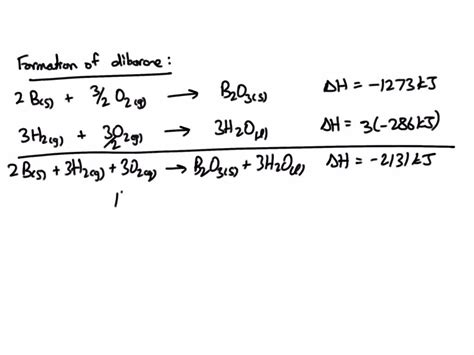 Formation of diborane:
2 B(s) + 3/2 O2(g) → B2O3(s) ΔH = -1273 kJ
3H2(g) + 3/2 O2(g) → 3H2O(l) ΔH = 3(-286 kJ)
2 B(s) + 3H2(g) + 3O2(g) → B2O3(s) + 3H2O(l) ΔH = -2131 kJ